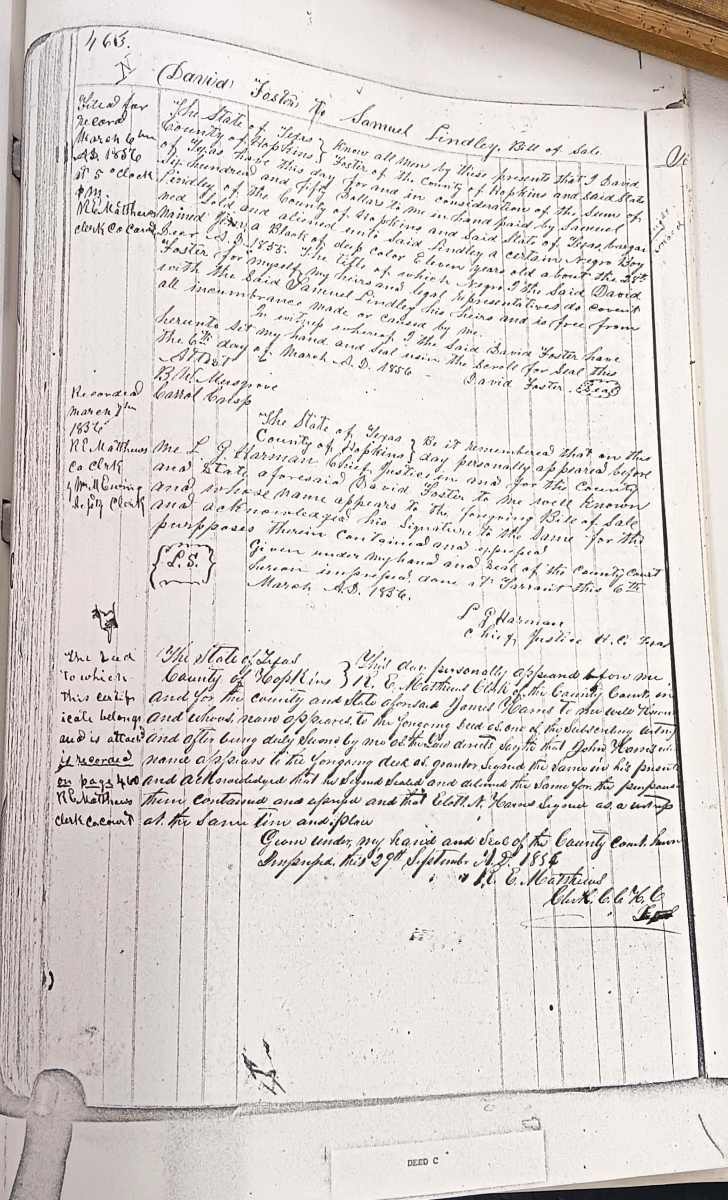 463.
N
David Foster To Samuel Lindley. Bill of Sale
Filed for
record
March 6
AD 1856
at 5 o clock
PM.
R E Matthews
clerk Co Court
The State of Texas
County of Hopkins } Know all men by these presents that I David
Foster of the County of Hopkins and said State
of Texas have this day for and in consideration of the Sum of
Six hundred and fifty Dollars to me in hand paid by Samuel
Lindley of the County of Hopkins and said State of Texas, bargai
ned Sold and aliened unto said Lindley a certain Negro Boy
Named a Black of deep color Eleven years old about the 25th
Decr A.D. 1855. The title of which Negro I the said David
Foster for myself my heirs and legal representatives do covenit
with the said Samuel Lindley his heirs and is free from
all incumbrance made or caused by me.
In witness whereof I the said David Foster have
hereunto set my hand and Seal using the Scroll for Seal this
the 6th day of March A.D. 1856 David Foster Seal
Attest
B W Musgrove
Carrol Crisp
Recorded
March
1856
R E Matthews
Co Clerk
Wm M Ewing
Deputy Clerk
The State of Texas
County of Hopkins } Be it remembered that on this
day personally appeared before
me L. G. Harman Chief Justice in and for the County
and State aforesaid David Foster to me well known
and whose name appears to the foregoing Bill of Sale
and acknowledged his Signature to the same for the
purposes therein contained and expressed
{L. S.}
Given under my hand and Seal of the County Court
hereon impressed done at Tarrant this 6th
March A.D. 1856.
L G Harman
Chief Justice H. C. Texas
The Deed
to which
this certif
icate belongs
and is attach
is recorded
on page 460
R E Matthews
clerk co court
The State of Texas
County of Hopkins } This day personally appeared before me
R. E. Matthews Clerk of the County Court in
and for the county and State aforesaid Harris to me well Known
and whose name appears to the foregoing deed as one of the Subscribing witnes
and after being duly Sworn by me as the law directs Sayeth that John Harris whose
name appears to the foregoing deed as grantor Signed the same in his presence
and acknowledged that he Signed Sealed and delivered the Same for the purposes
therein contained and expressed and that N. Harris Signed as a witness
at the same time and place
Given under my hand and Seal of the County Court hereon
Impressed, this 29th September A.D. 1854
R. E. Matthews
Clerk. C. C. H. C
Texas
DEED C